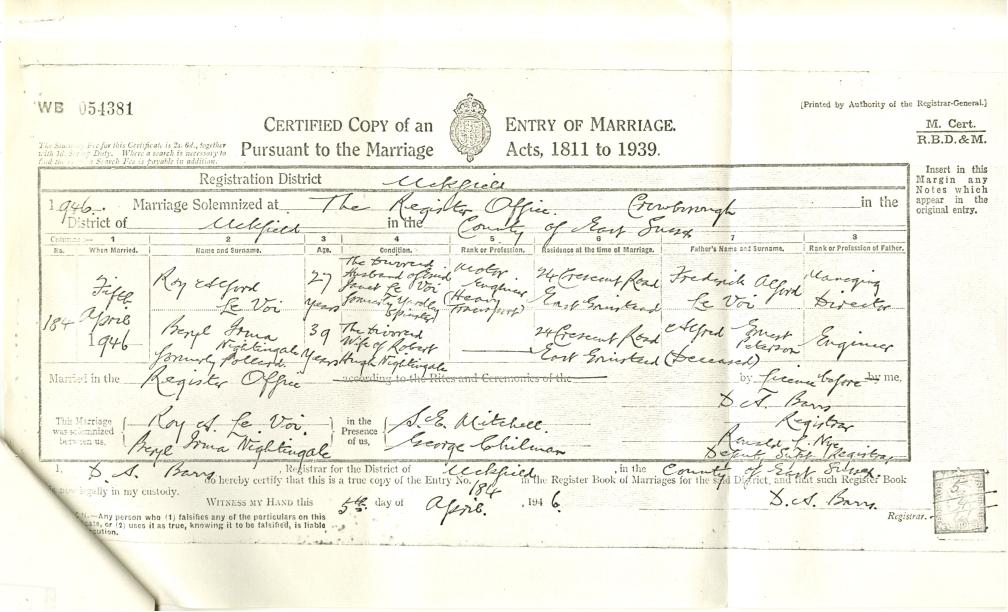 WB 054381
[Printed by Authority of the Registrar-General.]
CERTIFIED COPY of an ENTRY OF MARRIAGE.
Pursuant to the Marriage Acts, 1811 to 1939.
M. Cert.
R.B.D.&M.
The Statutory Fee for this Certificate is 2s. 6d., together
with 1d. Duty. Where a search is necessary to
find the a Search Fee is payable in addition.
Insert in this
Margin any
Notes which
appear in the
original entry.
Registration District Uckfield
1946. Marriage Solemnized at The Register Office. Crowborough in the
District of Uckfield in the County of East Sussex
Columns:— 1 2 3 4 5 6 7 8
No. When Married. Name and Surname. Age. Condition. Rank or Profession. Residence at the time of Marriage. Father's Name and Surname. Rank or Profession of Father.
184 Fifth April 1946
Roy Alford Le Voi
27 years
The divorced Husband of Enid Janet Le Voi formerly Spinster)
Motor Engineer (Heavy Transport)
24 Crescent Road East Grinstead
Frederick Alford Le Voi
Managing Director
Beryl Irma Nightingale formerly Pollard.
39 years
The divorced Wife of Robert Hugh Nightingale
24 Crescent Road East Grinstead
Alfred Ernest Peterson (Deceased)
Engineer
Married in the Register Office according to the Rites and Ceremonies of the by licence before by me,
This Marriage was solemnized between us,
Roy A. Le Voi.
Beryl Irma Nightingale
in the Presence of us,
S. E. Mitchell.
George Chilman
D. A. Barrs
Registrar
Ronald J. Nye
Deputy Supt Registrar
I, D. A. Barrs, Registrar for the District of Uckfield, in the County of East Sussex,
do hereby certify that this is a true copy of the Entry No. 184 in the Register Book of Marriages for the said District, and that such Register Book
is now legally in my custody.
WITNESS MY HAND this 5th day of April, 1946.
D. A. Barrs
Registrar.
Any person who (1) falsifies any of the particulars on this
or (2) uses it as true, knowing it to be falsified, is liable